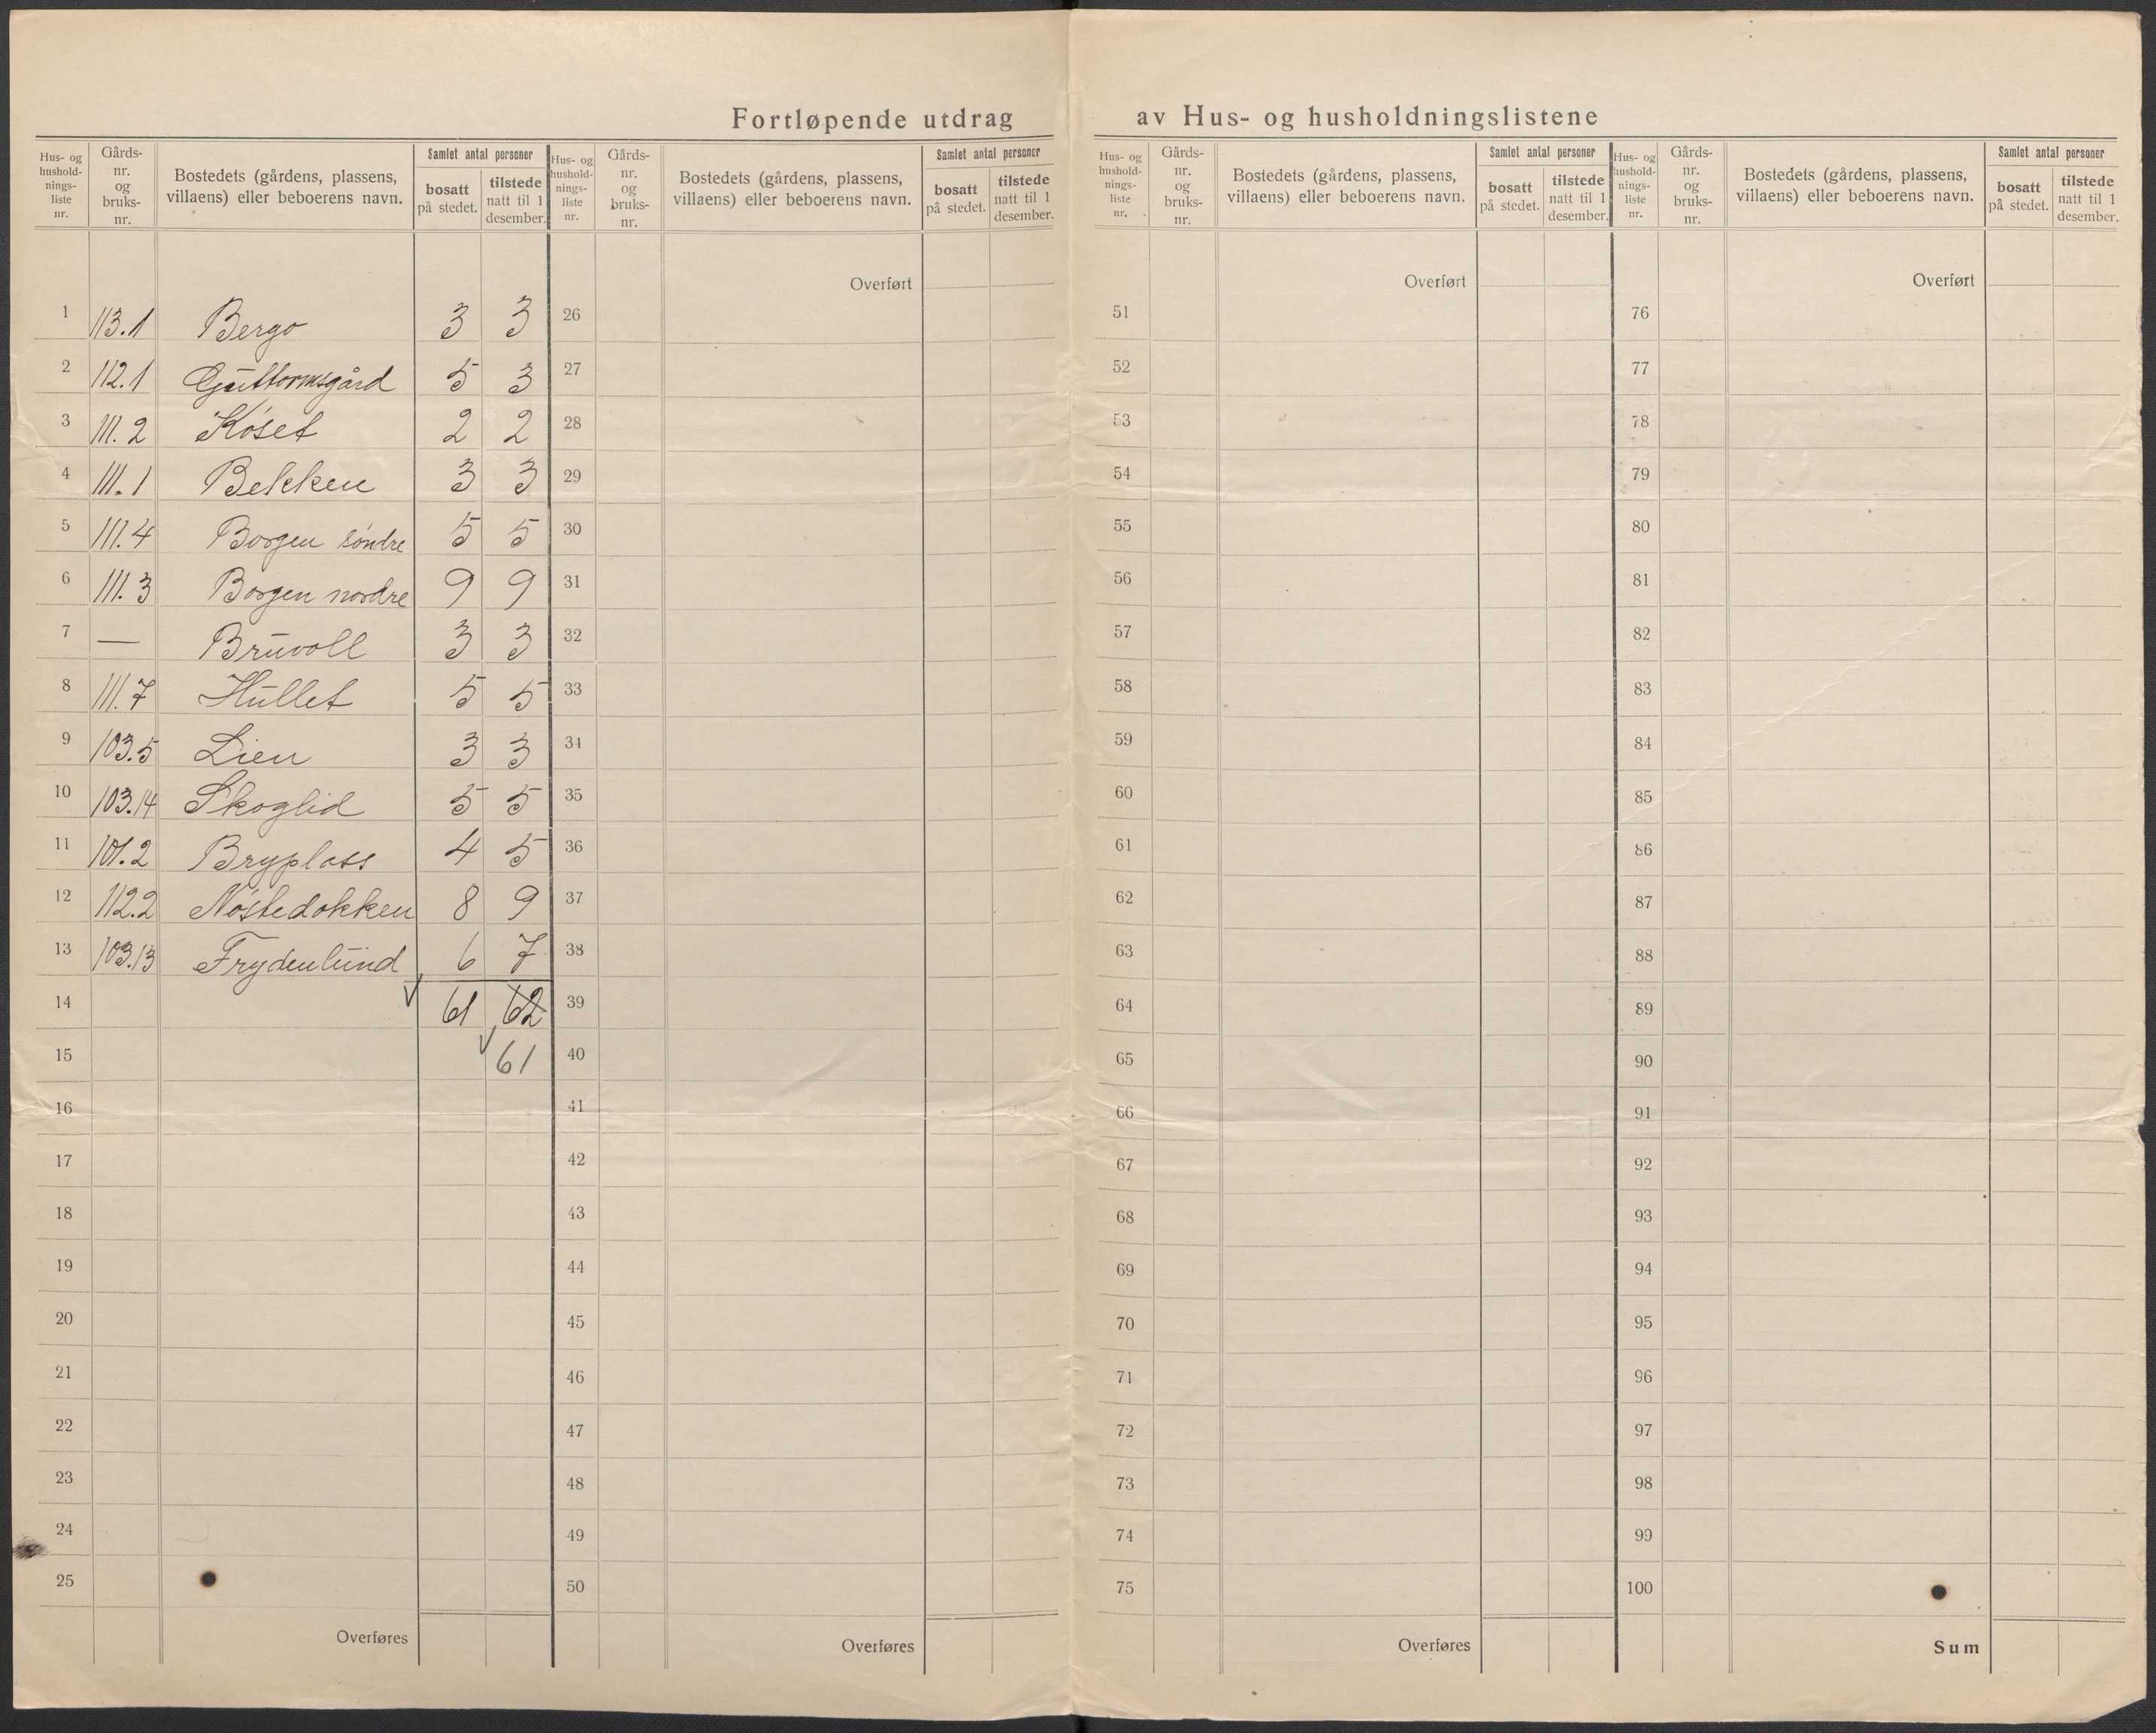 Fortløpende utdrag av Hus- og husholdningslistene
Hus- og hushold- nings- liste nr. Gårds- nr. og bruks- nr. Bostedets (gårdens, plassens, villaens) eller beboerens navn. Samlet antal personer bosatt på stedet. tilstede natt til 1 desember.
Hus- og hushold- nings- liste nr. Gårds- nr. og bruks- nr. Bostedets (gårdens, plassens, villaens) eller beboerens navn. Samlet antal personer bosatt på stedet. tilstede natt til 1 desember.
Hus- og hushold- nings- liste nr. Gårds- nr. og bruks- nr. Bostedets (gårdens, plassens, villaens) eller beboerens navn. Samlet antal personer bosatt på stedet. tilstede natt til 1 desember.
Hus- og hushold- nings- liste nr. Gårds- nr. og bruks- nr. Bostedets (gårdens, plassens, villaens) eller beboerens navn. Samlet antal personer bosatt på stedet. tilstede natt til 1 desember.
Overført Overført Overført
1 113.1 Bergo 3 3 26 51 76
2 112.1 Guttormsgård 5 3 27 52 77
3 111.2 Køset 2 2 28 53 78
4 111.1 Bekken 3 3 29 54 79
5 111.4 Borgen søndre 5 5 30 55 80
6 111.3 Borgen nordre 9 9 31 56 81
7 — Bruvoll 3 3 32 57 82
8 111.7 Hullet 5 5 33 58 83
9 103.5 Lien 3 3 34 59 84
10 103.14 Skoglid 5 5 35 60 85
11 101.2 Bryplass 4 5 36 61 86
12 112.2 Nøstedokken 8 9 37 62 87
13 103.13 Frydenlund 6 7 38 63 88
14 61 62 39 64 89
15 61 40 65 90
16 41 66 91
17 42 67 92
18 43 68 93
19 44 69 94
20 45 70 95
21 46 71 96
22 47 72 97
23 48 73 98
24 49 74 99
25 50 75 100
Overføres Overføres Overføres Sum